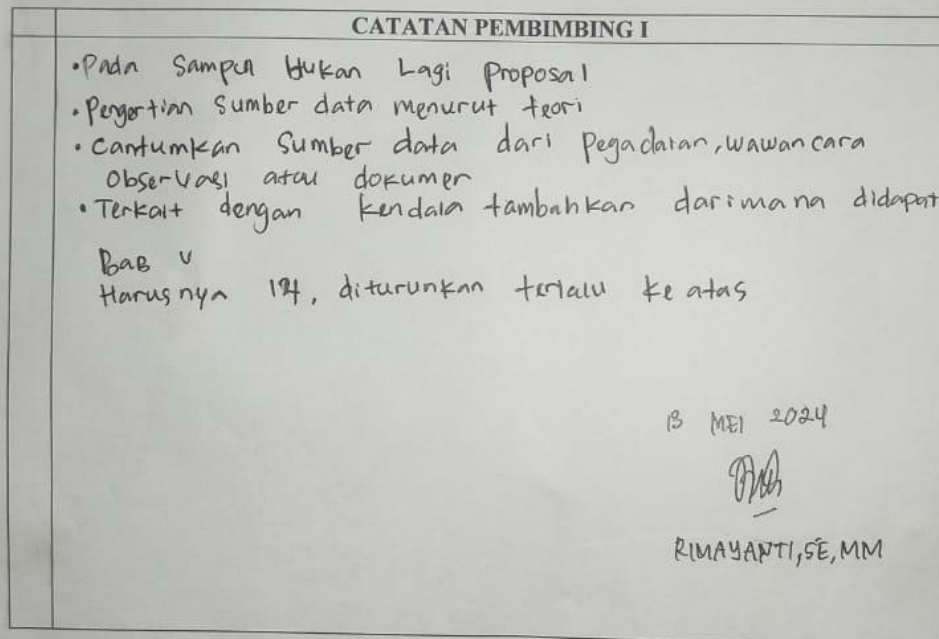 CATATAN PEMBIMBING I
•Pada Sampul bukan Lagi Proposal
•Pengertian Sumber data menurut teori
•Cantumkan Sumber data dari Pegadaian, wawancara
Observasi atau dokumen
•Terkait dengan kendala tambahkan darimana didapat
BaB V
Harusnya 14, diturunkan terlalu ke atas
13 MEI 2024
RIMAYANTI, SE, MM